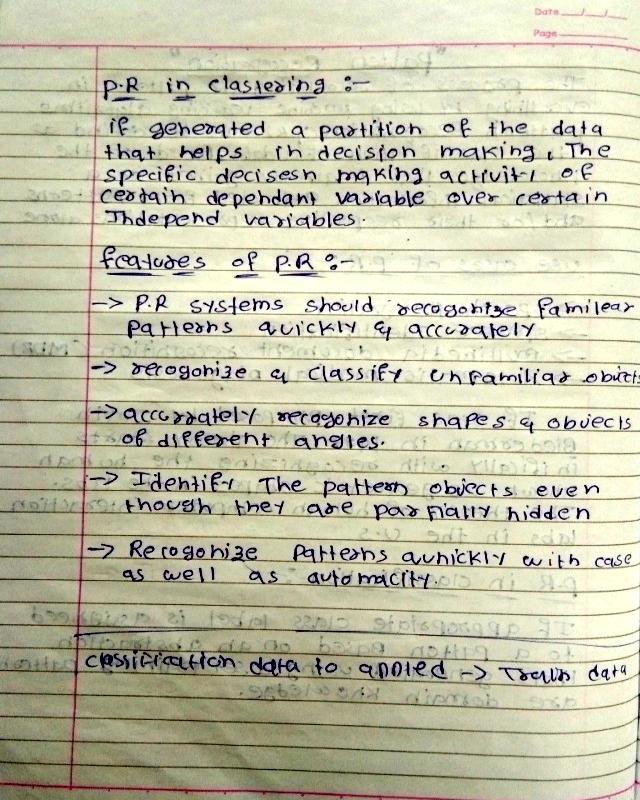 Date
Page
P.R in clastering :-
if generated a partition of the data
that helps in decision making, The
specific decisesn making activiti of
certain dependant variable over certain
Independ variables.
features of P.R :-
-> P.R systems should recogonize familear
patterns quickly & accurately
-> recogonize & classify unfamiliar obicts
-> accurrately recogonize shapes & obiects
of different angles.
-> Identify The pattern obiects even
though they are partially hidden
-> Recogonize patterns quhickly with case
as well as automacity.
classification data to applied -> Train data